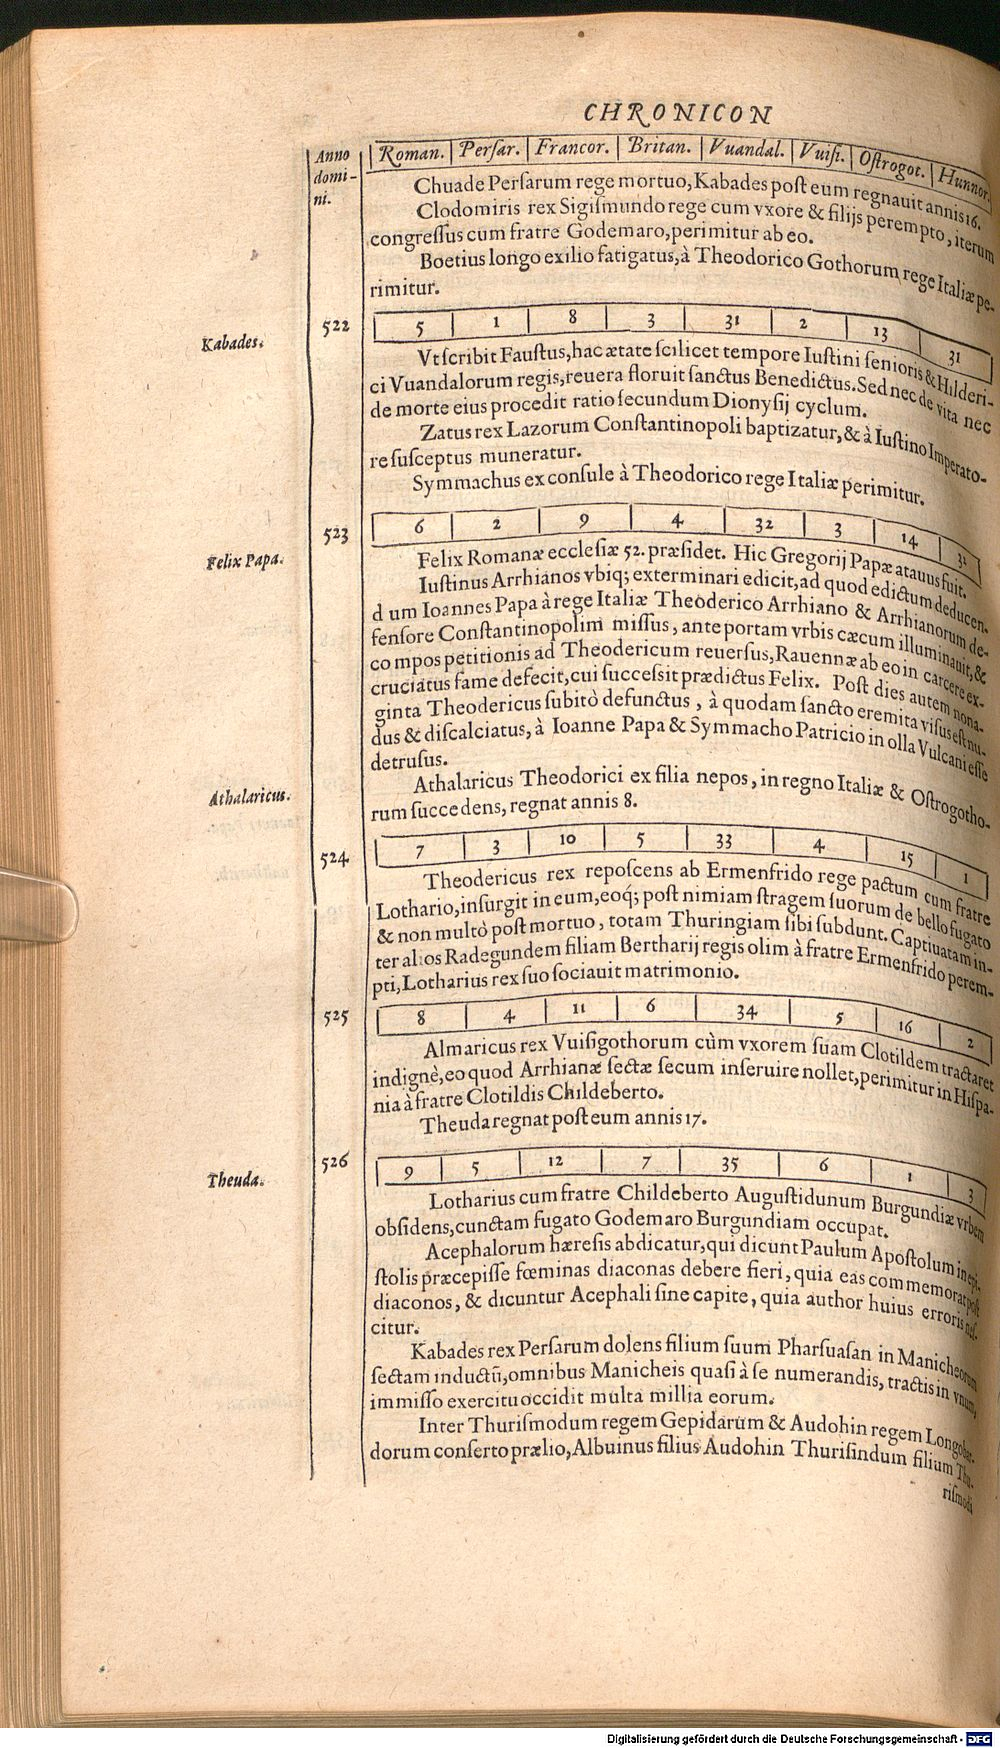 CHRONICON
Anno domini.
Roman. Persar. Francor. Britan. Vuandal. Vuisi. Ostrogot. Hunnor.
Chuade Persarum rege mortuo, Kabades post eum regnauit annis 16.
Clodomiris rex Sigismundo rege cum vxore & filijs perempto, iterum
congressus cum fratre Godemaro, perimitur ab eo.
Boetius longo exilio fatigatus, à Theodorico Gothorum rege Italiæ pe-
rimitur.
522 5 1 8 3 31 2 13 31
Kabades.
Vt scribit Faustus, hac ætate scilicet tempore Iustini senioris & Hilderi-
ci Vuandalorum regis, reuera floruit sanctus Benedictus. Sed nec de vita nec
de morte eius procedit ratio secundum Dionysij cyclum.
Zatus rex Lazorum Constantinopoli baptizatur, & à Iustino Imperato-
re susceptus muneratur.
Symmachus ex consule à Theodorico rege Italiæ perimitur.
523 6 2 9 4 32 3 14 32
Felix Papa.
Felix Romanæ ecclesiæ 52. præsidet. Hic Gregorij Papæ atauus fuit.
Iustinus Arrhianos vbiq; exterminari edicit, ad quod edictum deducen-
dum Ioannes Papa à rege Italiæ Theoderico Arrhiano & Arrhianorum de-
fensore Constantinopolim missus, ante portam vrbis cæcum illuminauit, &
compos petitionis ad Theodericum reuersus, Rauennæ ab eo in carcere ex-
cruciatus fame defecit, cui successit prædictus Felix. Post dies autem nona-
ginta Theodericus subitò defunctus, à quodam sancto eremita visus est nu-
dus & discalciatus, à Ioanne Papa & Symmacho Patricio in olla Vulcani esse
detrusus.
Athalaricus.
Athalaricus Theodorici ex filia nepos, in regno Italiæ & Ostrogotho-
rum succedens, regnat annis 8.
524 7 3 10 5 33 4 15 1
Theodericus rex reposcens ab Ermenfrido rege pactum cum fratre
Lothario, insurgit in eum, eoq; post nimiam stragem suorum de bello fugato
& non multò post mortuo, totam Thuringiam sibi subdunt. Captiuatam in-
ter alios Radegundem filiam Bertharij regis olim à fratre Ermenfrido perem-
pti, Lotharius rex suo sociauit matrimonio.
525 8 4 11 6 34 5 16 2
Almaricus rex Vuisigothorum cùm vxorem suam Clotildem tractaret
indignè, eo quod Arrhianæ sectæ secum inseruire nollet, perimitur in Hispa-
nia à fratre Clotildis Childeberto.
Theuda regnat post eum annis 17.
526 9 5 12 7 35 6 1 3
Theuda.
Lotharius cum fratre Childeberto Augustidunum Burgundiæ vrbem
obsidens, cunctam fugato Godemaro Burgundiam occupat.
Acephalorum hæresis abdicatur, qui dicunt Paulum Apostolum in epi-
stolis præcepisse fœminas diaconas debere fieri, quia eas commemorat post
diaconos, & dicuntur Acephali sine capite, quia author huius erroris nes-
citur.
Kabades rex Persarum dolens filium suum Pharsuasan in Manicheorum
sectam inductū, omnibus Manicheis quasi à se numerandis, tractis in vnum,
immisso exercitu occidit multa millia eorum.
Inter Thurismodum regem Gepidarum & Audohin regem Longobar-
dorum conserto prælio, Albuinus filius Audohin Thurisindum filium Thu-
rismodi
Digitalisierung gefördert durch die Deutsche Forschungsgemeinschaft - DFG